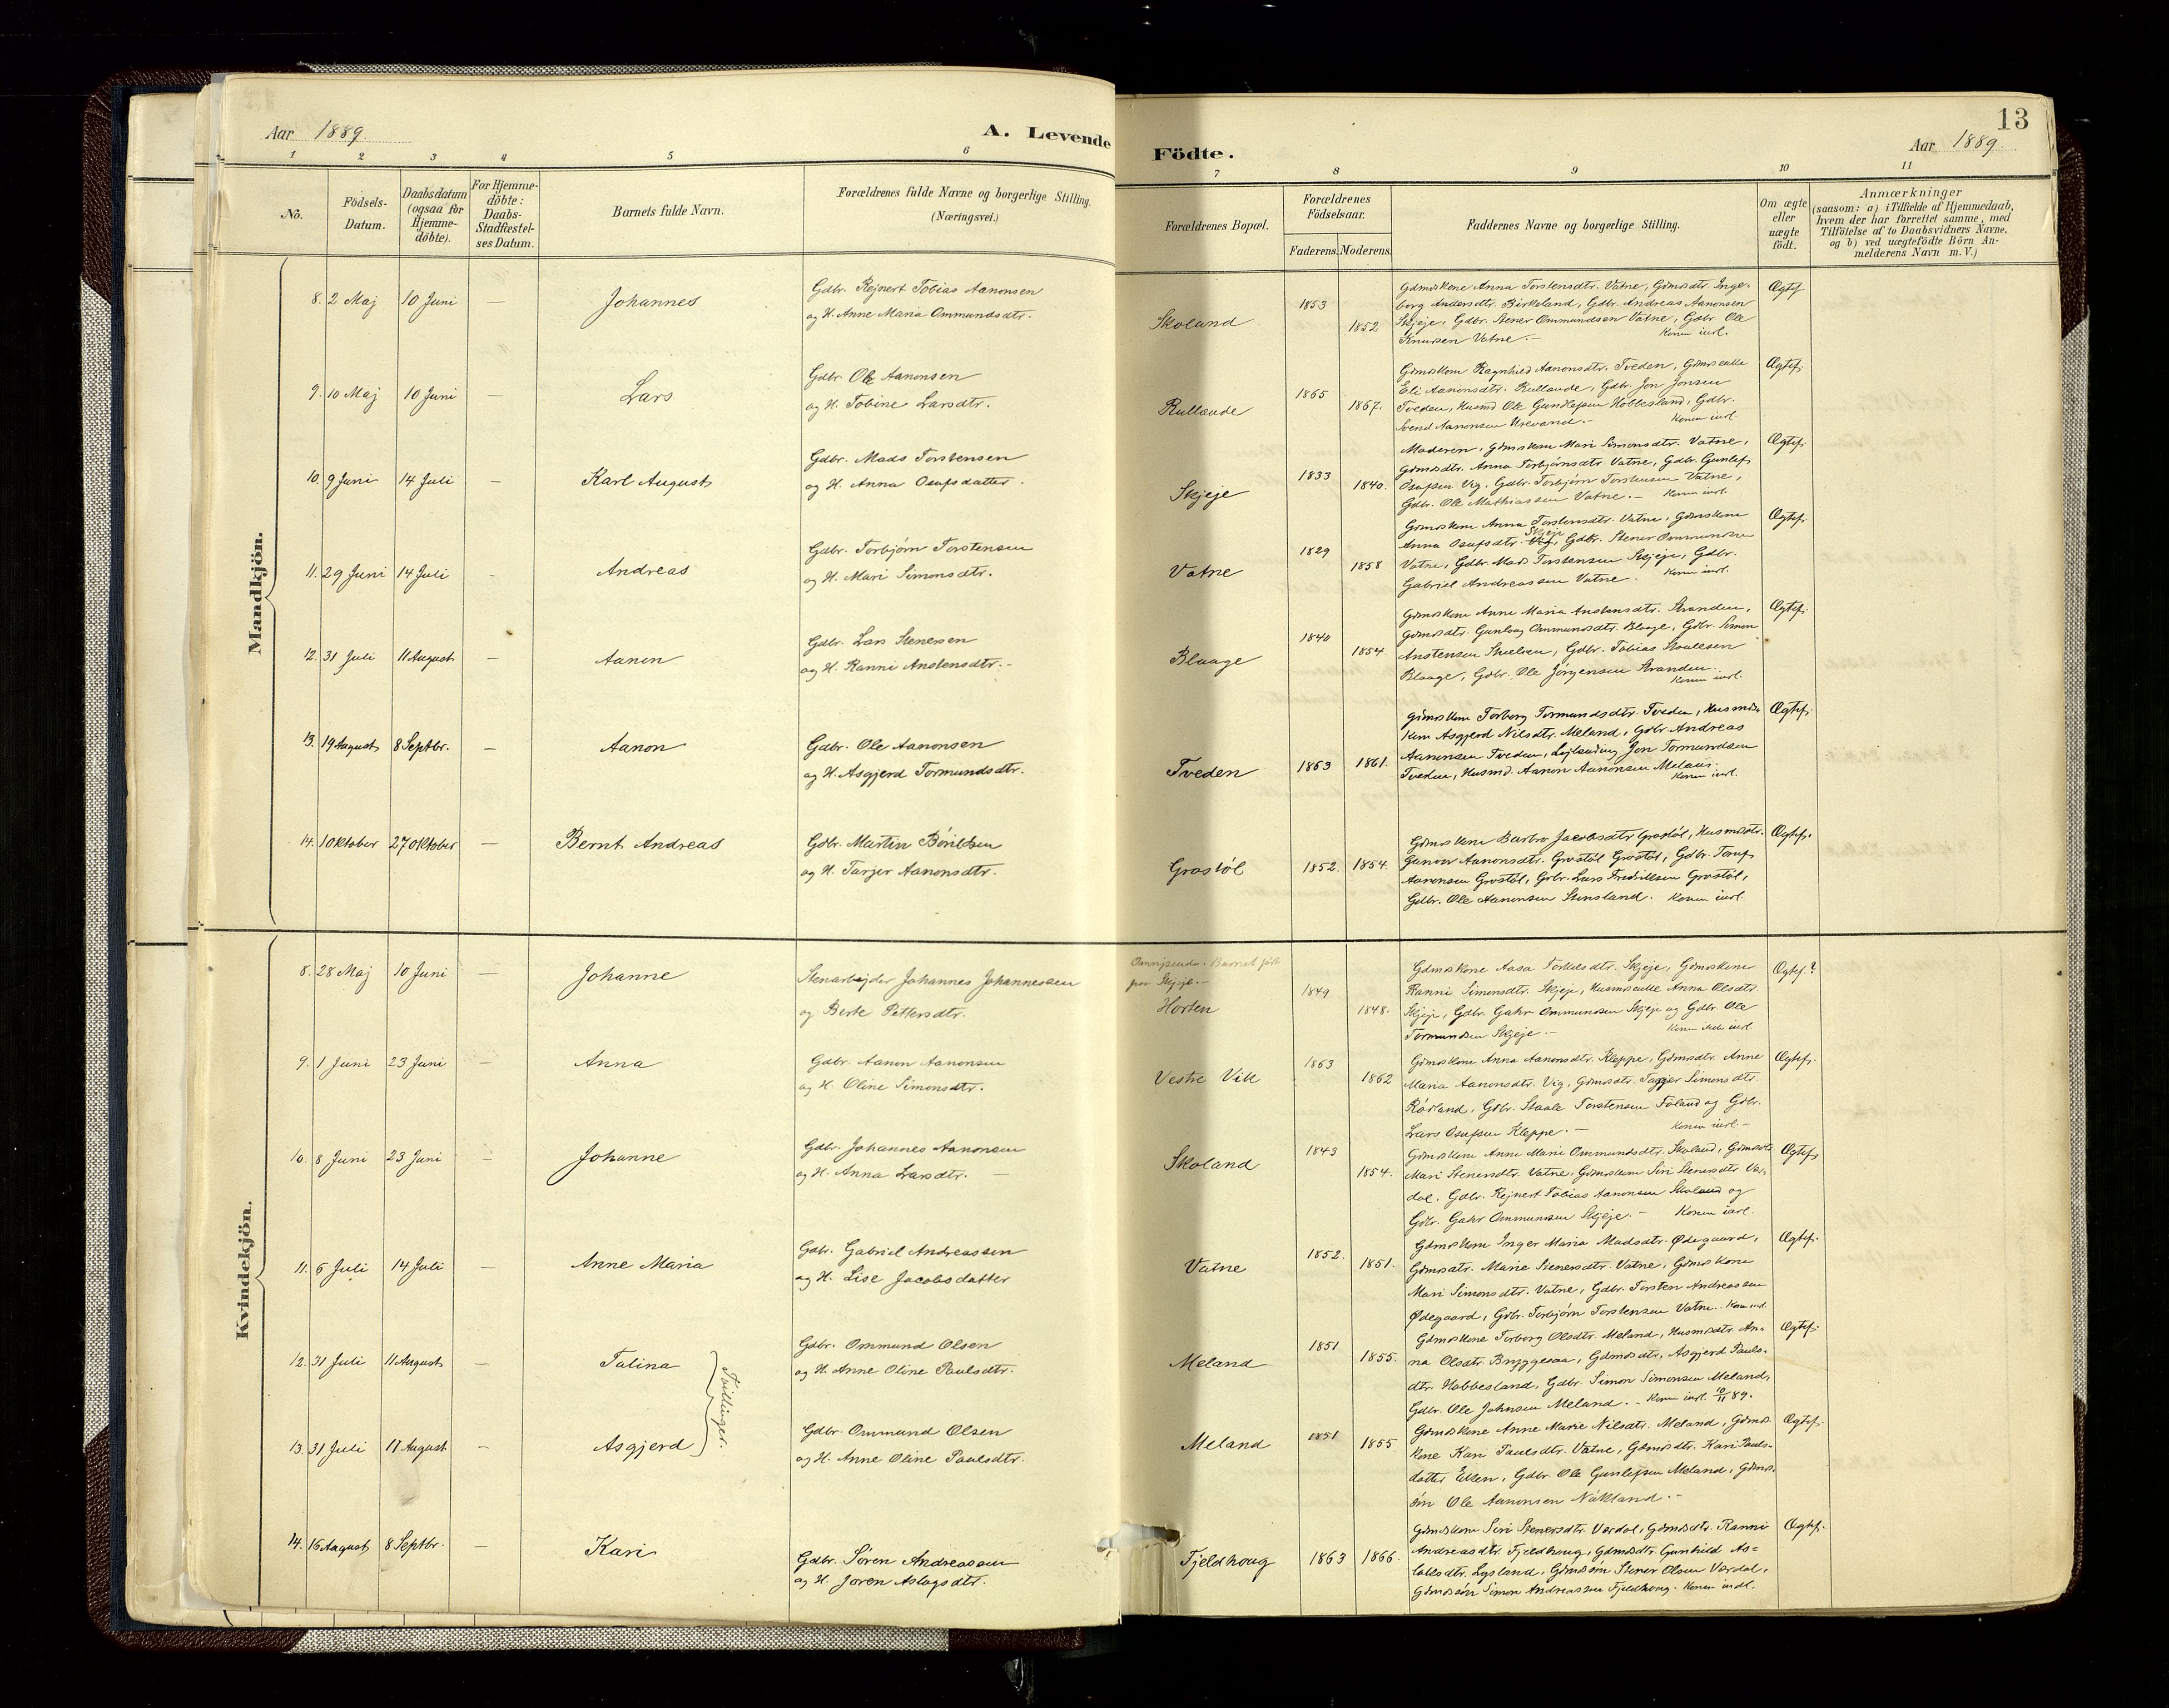 Aar 1889.
A. Levende Födte.
13
Aar 1889.
1 2 3 4 5 6 7 8 9 10 11
No.
Födsels-Datum.
Daabsdatum (ogsaa for Hjemme-döbte).
For Hjemme-döbte: Daabs-Stadfæstel-ses Datum.
Barnets fulde Navn.
Forældrenes fulde Navne og borgerlige Stilling. (Næringsvei.)
Forældrenes Bopæl.
Forældrenes Födselsaar.
Faderens. Moderens.
Faddernes Navne og borgerlige Stilling.
Om ægte eller uægte født.
Anmærkninger
(saasom: a) i Tilfælde af Hjemmedaab,
hvem der har forrettet samme, med
Tilföielse af to Daabsvidners Navne,
og b) ved uægtefödte Börn An-
melderens Navn m. V.)
Mandkjön.
8. 2 Maj 10 Juni — Johannes
Gdbr. Rejnert Tobias Aanonsen
og H. Anne Maria Ommundsdtr.
Skoland 1853 1852
Gdmdskone Anna Torstensdtr. Vatne, Gdmdsdtr. Inge-
borg Andersdtr. Birkeland, Gdbr. Andreas Aanonsen
Skjeje, Gdbr. Stener Ommundsen Vatne, Gdbr. Ole
Knutsen Vatne. — Konen indl.
Ægtef.
9. 10 Maj 10 Juni — Lars
Gdbr. Ole Aanonsen
og H. Tobine Larsdtr.
Rullaude 1865 1867.
Gdmdskone Ragnhild Aanonsdtr. Tveden, Gdmdsenke
Eli Aanonsdtr. Rullaude, Gdbr. Jon Jonsen
Tveden, Husmd Ole Gundlefsen Hobbesland, Gdbr.
Svend Aanonsen Urevand. — Konen indl.
Ægtef.
10. 9 Juni 14 Juli — Karl August
Gdbr. Mads Torstensen
og H. Anna Osufsdatter.
Skjeje 1833 1840.
Moderen, Gdmdskone Mari Simonsdtr. Vatne,
Gdmdsdtr. Anna Torbjørnsdtr. Vatne, Gdbr. Gunlef
Osufsen Vig, Gdbr. Torbjørn Torstensen Vatne,
Gdbr. Ole Mathiassen Vatne. — Konen indl.
Ægtef.
11. 29 Juni 14 Juli — Andreas
Gdbr. Torbjørn Torstensen
og H. Mari Simonsdtr.
Vatne 1829 1858
Gdmdskone Anna Torstensdtr. Vatne, Gdmdskone
Anna Osufsdtr. Skjeje, Gdbr. Stener Ommundsen
Vatne, Gdbr. Mads Torstensen Skjeje, Gdbr.
Gabriel Andreassen Vatne. Konen indl.
Ægtef.
12. 31 Juli 11 August — Aanen
Gdbr. Lars Stenersen
og H. Ranni Anstensdtr. —
Blaage 1840 1854.
Gdmdskone Anne Maria Anstensdtr. Stranden,
Gdmdsdtr. Gunlaug Ommundsdtr. Blaage, Gdbr. Simon
Anstensen, Gdbr. Tobias Staalesen
Blaage, Gdbr. Ole Jørgensen Stranden.
Konen indl.
Ægtef.
13. 19 August 8 Septbr. — Aanon
Gdbr. Ole Aanonsen
og H. Asgjerd Tormundsdtr.
Tveden 1863 1861.
Gdmdskone Torborg Tormundsdtr. Tveden, Husmds-
kone Asgjerd Nilsdtr. Meland, Gdbr Andreas
Aanonsen Tveden, Lejlending Jon Tormundsen
Tveden, Husmd. Aanon Aanonsen
Konen indl.
Ægtef.
14. 1 Oktober 27 Oktober — Bernt Andreas
Gdbr. Martin
og H. Tarjer Aanonsdtr.
Grostøl 1852. 1854.
Gdmdskone Barbro Jacobsdtr Grostøl, Husmdsdtr.
Gunvor Aanonsdtr. Grostøl Grostøl, Gdbr. Toruf
Aanonsen Grostøl, Gdbr. Lars Fredriksen Grostøl,
Gdbr. Ole Aanonsen Stensland. Konen indl.
Ægtef.
Kvindekjön.
8. 28 Maj 10 Juni — Johanne
Stenarbejder Johannes Johannessen
og Berte Pettersdtr.
Omrejsende. Barnet født
paa Skjeje. —
Horten 1849 1848.
Gdmdskone Aasa Torkelsdtr. Skjeje, Gdmdskone
Ranni Simonsdtr. Skjeje, Husmdsenke Anna Olsdtr.
Skjeje, Gdbr. Gahr Ommundsen Skjeje og Gdbr. Ole
Tormundsen Skjeje. — Konen ikke indl
Ægtef.?
9. 1 Juni 23 Juni — Anna
Gdbr. Aanon Aanonsen
og H. Oline Simonsdtr.
Vestre Vik 1863 1862
Gdmdskone Anna Aanonsdtr. Kleppe, Gdmdsdtr. Anne
Maria Aanonsdtr. Vig, Gdmdsdtr. Tarjer Simonsdtr.
Rørland, Gdbr. Staale Torstensen Føland og Gdbr.
Lars Osufsen Kleppe. — Konen indl. —
Ægtef.
10. 8 Juni 23 Juni — Johanne
Gdbr. Johannes Aanonsen
og H. Anna Larsdtr. —
Skoland 1843 1854.
Gdmdskone Anne Marie Ommundsdtr. Skoland, Gdmdsdtr
Mari Stenersdtr. Vatne, Gdmdskone Siri Stenersdtr. Var-
dal, Gdbr. Rejnert Tobias Aanonsen Skoland og
Gdbr. Gahr Ommundsen Skjeje. — Konen indl.
Ægtef.
11. 6 Juli 14 Juli — Anne Maria
Gdbr. Gabriel Andreassen
og H. Lise Jacobsdatter
Vatne 1852. 1851.
Gdmdskone Inger Maria Madsdtr. Ødegaard,
Gdmdsdtr. Marie Stenersdtr. Vatne, Gdmdskone
Mari Simonsdtr. Vatne, Gdbr. Torsten Andreassen
Ødegaard, Gdbr. Torbjørn Torstensen Vatne. Konen indl.
Ægtef.
12. 31 Juli 11 August — Talina
Tvillinger.
Gdbr. Ommund Olsen
og H. Anne Oline Paulsdtr.
Meland 1851 1855.
Gdmdskone Torborg Olsdtr. Meland, Husmdsdtr. An-
na Olsdtr. Bryggesaa, Gdmdsdtr. Asgjerd Pauls-
dtr. Hobbesland, Gdbr Simon Simonsen Meland,
Gdbr. Ole Johnsen Meland. - Konen indl. 10/11 89.
Ægtef.
13. 31 Juli 11 August — Asgjerd
Gdbr. Ommund Olsen
og H. Anne Oline Paulsdtr.
Meland 1851 1855
Gdmdskone Anne Marie Nilsdtr. Meland, Gdmds-
kone Kari Paulsdtr. Vatne, Gdmdsdtr. Kari Pauls-
datter Eiken, Gdbr Ole Gunlefsen Meland, Gdmds-
søn Ole Aanonsen Nökland. —
Ægtef.
14. 16 August 8 Septbr. — Kari
Gdbr. Søren Andreassen
og H. Joren Aslagsdtr.
Fjeldhoug 1863 1866.
Gdmdskone Siri Stenersdtr. Vardal, Gdmdsdtr. Ranni
Andreasdtr. Fjeldhoug, Gdmdsdtr. Gunhild As-
laksdtr. Lysland, Gdmdssøn Stener Olsen Vardal,
Gdmdssøn Simon Andreassen Fjeldhoug. Konen indl.
Ægtef.